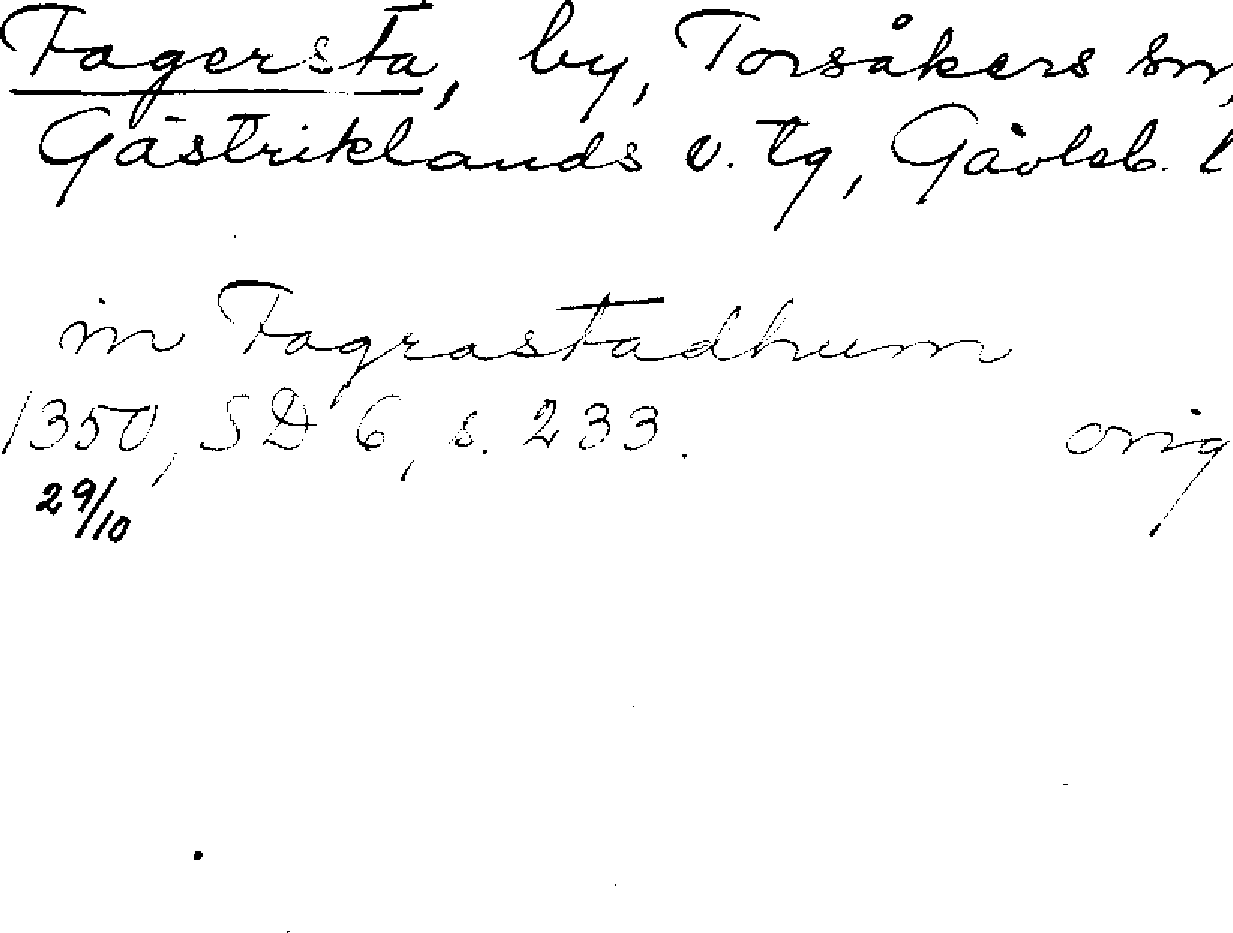 Fagersta, by, Torsåkers sn,
Gästriklands v. tg, Gävleb. l
in Fagrastadhum
1350, SD 6, s. 233. orig
29/10